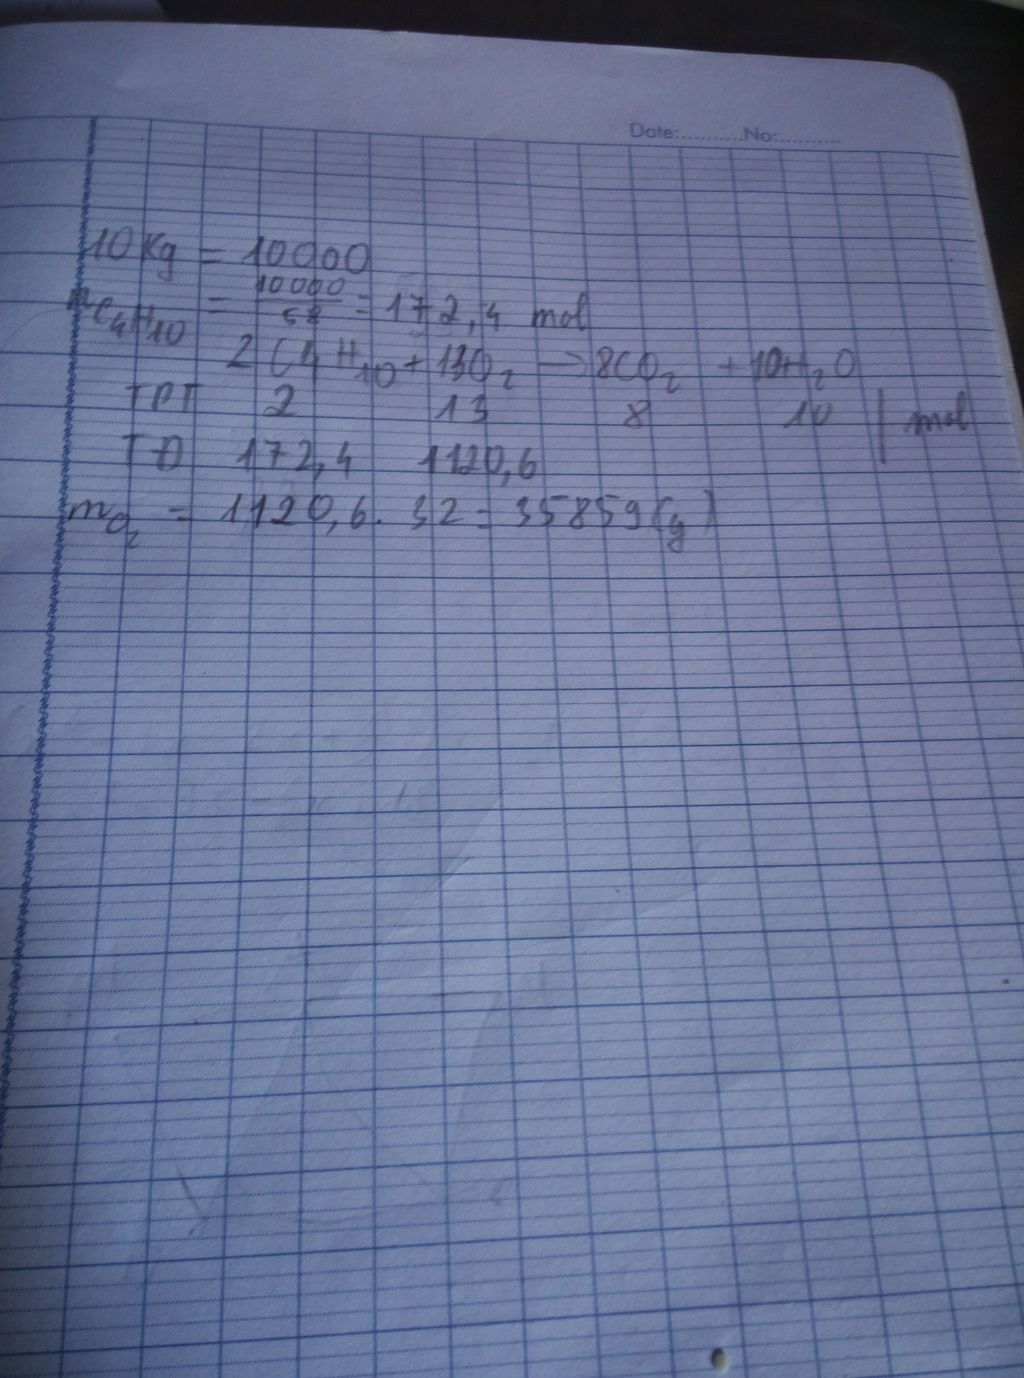 Date:...........No:...........
10 Kg = 10000
nC4H10 = 10000/58 = 172,4 mol
2C4H10 + 13O2 -> 8CO2 + 10H2O
TPT 2 13 8 10 | mol
TĐ 172,4 1120,6
mO2 = 1120,6. 32 = 35859(g)